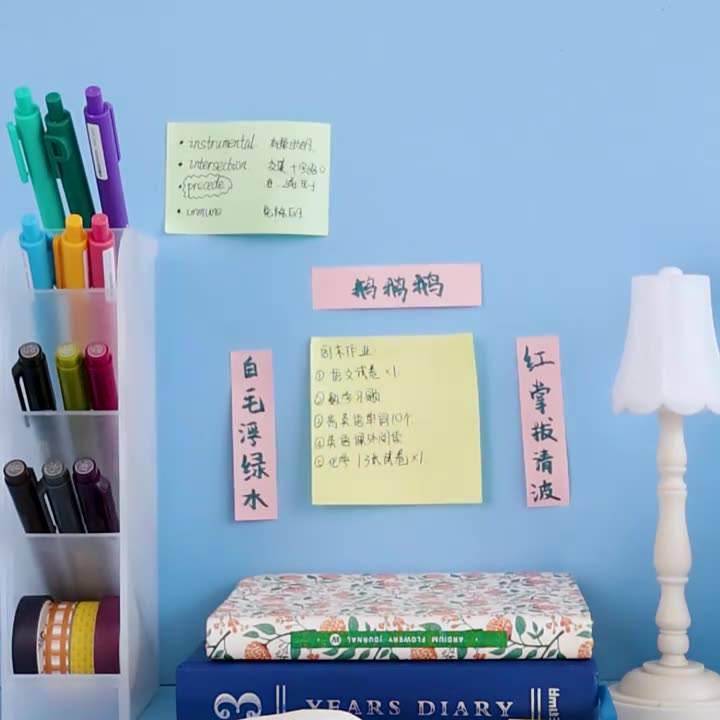 • instrumental
• intersection 交集 十字路口
• precede
• immune 免疫的
鹅鹅鹅
白毛浮绿水
周末作业:
① 语文试卷×1
② 数学习题
③ 背英语单词10个
④ 英语课外阅读
⑤ 化学 试卷×1
红掌拔清波
ARDIUM FLOWERY JOURNAL
3 YEARS DIARY